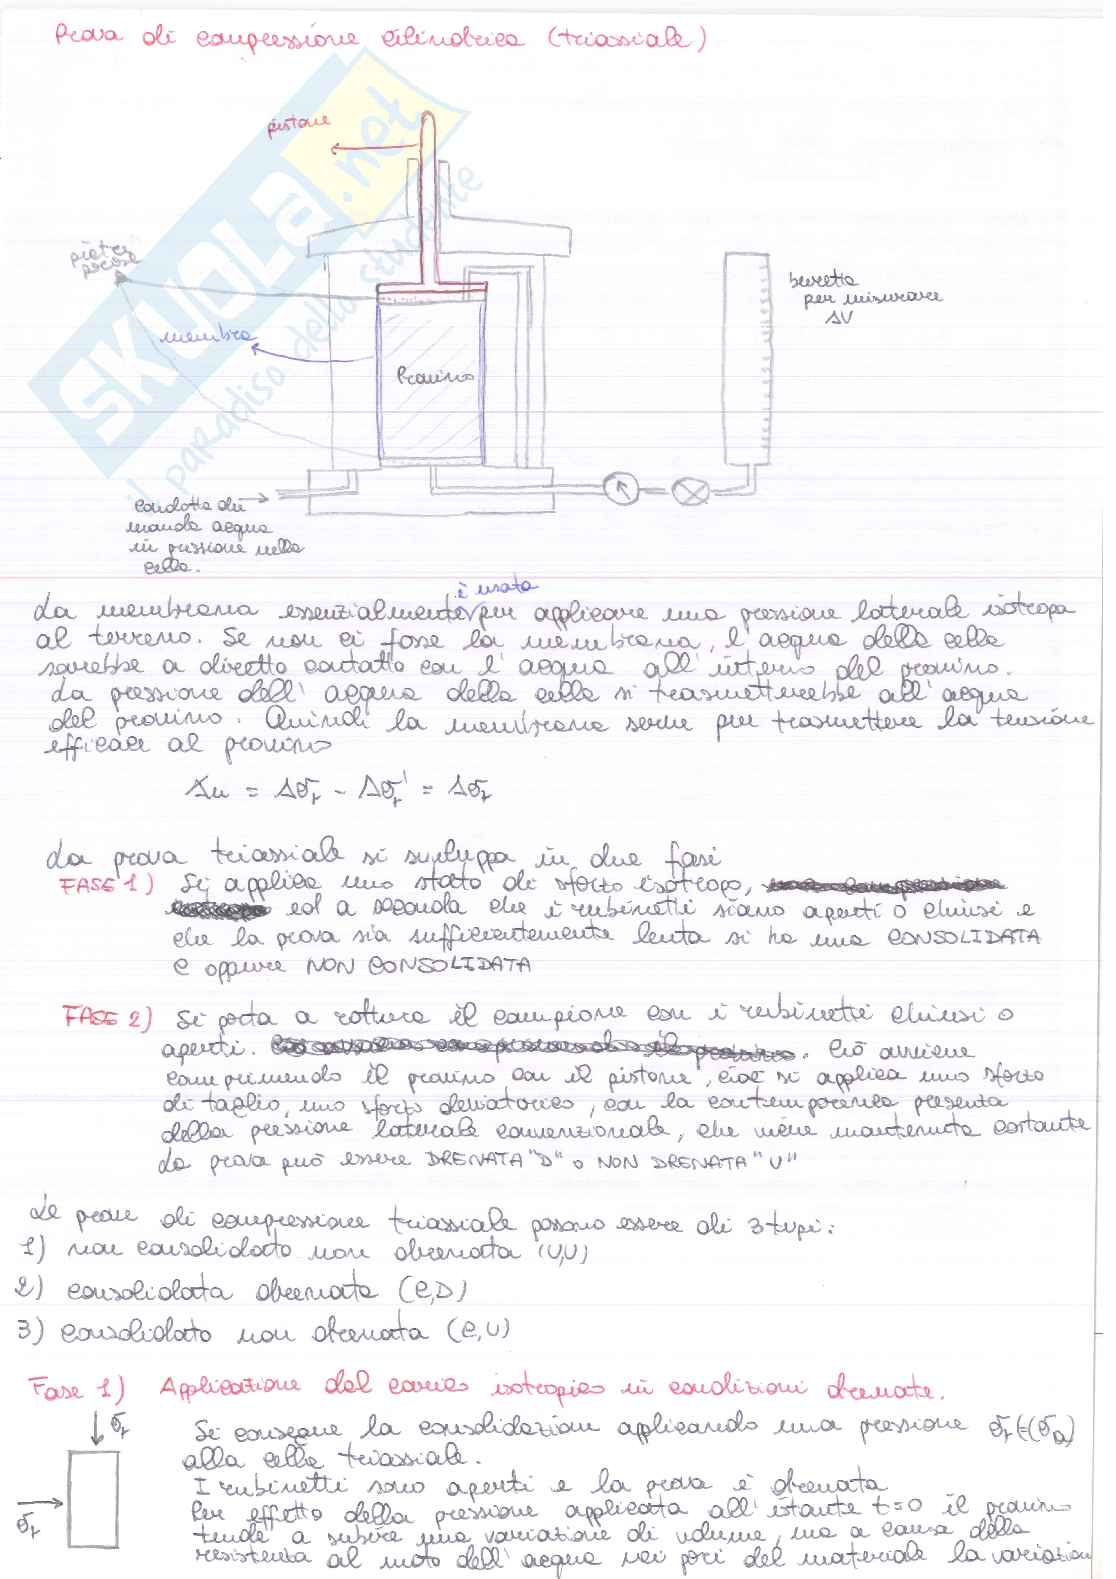 Prova di compressione cilindrica (triassiale)
pistone
pietre
porose
membra
Provino
buretta
per misurare
ΔV
condotta che
manda acqua
in pressione nella
cella.
SKUOLA.net
il paradiso dello studente
è usata
La membrana essenzialmente per applicare una pressione laterale isotropa
al terreno. Se non ci fosse la membrana, l'acqua della cella
sarebbe a diretto contatto con l'acqua all'interno del provino.
La pressione dell'acqua della cella si trasmetterebbe all'acqua
del provino. Quindi la membrana serve per trasmettere la tensione
efficace al provino
Δu = Δσr - Δσr' = Δσr
La prova triassiale si sviluppa in due fasi
FASE 1) Si applica uno stato di sforzo isotropo,
ed a seconda che i rubinetti siano aperti o chiusi e
che la prova sia sufficientemente lenta si ha una CONSOLIDATA
C oppure NON CONSOLIDATA
FASE 2) Si porta a rottura il campione con i rubinetti chiusi o
aperti. Ciò avviene
comprimendo il provino con il pistone, cioè si applica uno sforzo
di taglio, uno sforzo deviatorico, con la contemporanea presenza
della pressione laterale convenzionale, che viene mantenuta costante
La prova può essere DRENATA "D" o NON DRENATA "U"
Le prove di compressione triassiale possono essere di 3 tipi:
1) non consolidata non drenata (U,U)
2) consolidata drenata (C,D)
3) consolidata non drenata (C,U)
Fase 1) Applicazione del carico isotropico in condizioni drenate.
σr
σr
Si consegue la consolidazione applicando una pressione σr (=σa)
alla cella triassiale.
I rubinetti sono aperti e la prova è drenata
Per effetto della pressione applicata all'istante t=0 il provino
tende a subire una variazione di volume, ma a causa della
resistenza al moto dell'acqua nei pori del materiale la variazion